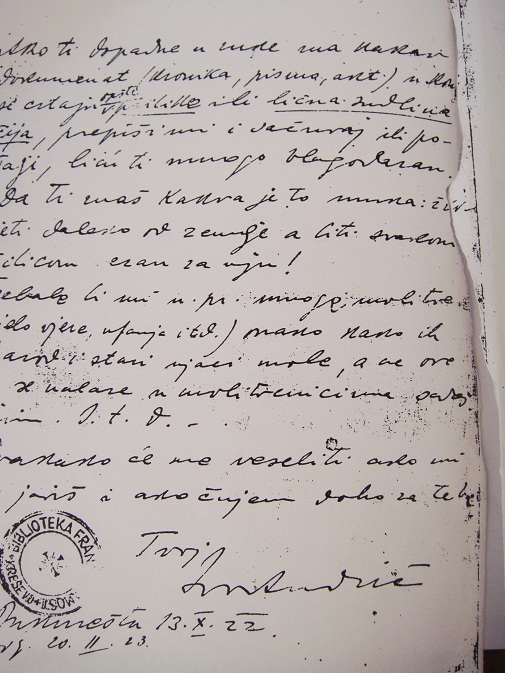 Ako ti dopadne u ruke ma kakav
dokumenat (kronika, pisma, akt) u kom
se crtaju opšte prilike ili lična sudbina
prepiši mi i sačuvaj ili po-
šalji, biću ti mnogo blagodaran.
Da ti znaš kakva je to muka: živ-
jeti daleko od zemlje a biti svakom
žilicom vezan za nju!
Trebalo bi mi n. pr. mnogo molitve
(djelo vjere, ufanja itd.) onako kako ih
narod i stari vjaci mole, a ne ove
što se nalaze u molitvenicima
I. t. d. - .
Svakako će me veseliti ako mi
se javiš i ako čujem dobro za tebe
Tvoj
Ivo Andrić
BIBLIOTEKA FRAN
KREŠEVO
Bukurešta 13. X. 22.
20. II. 23.